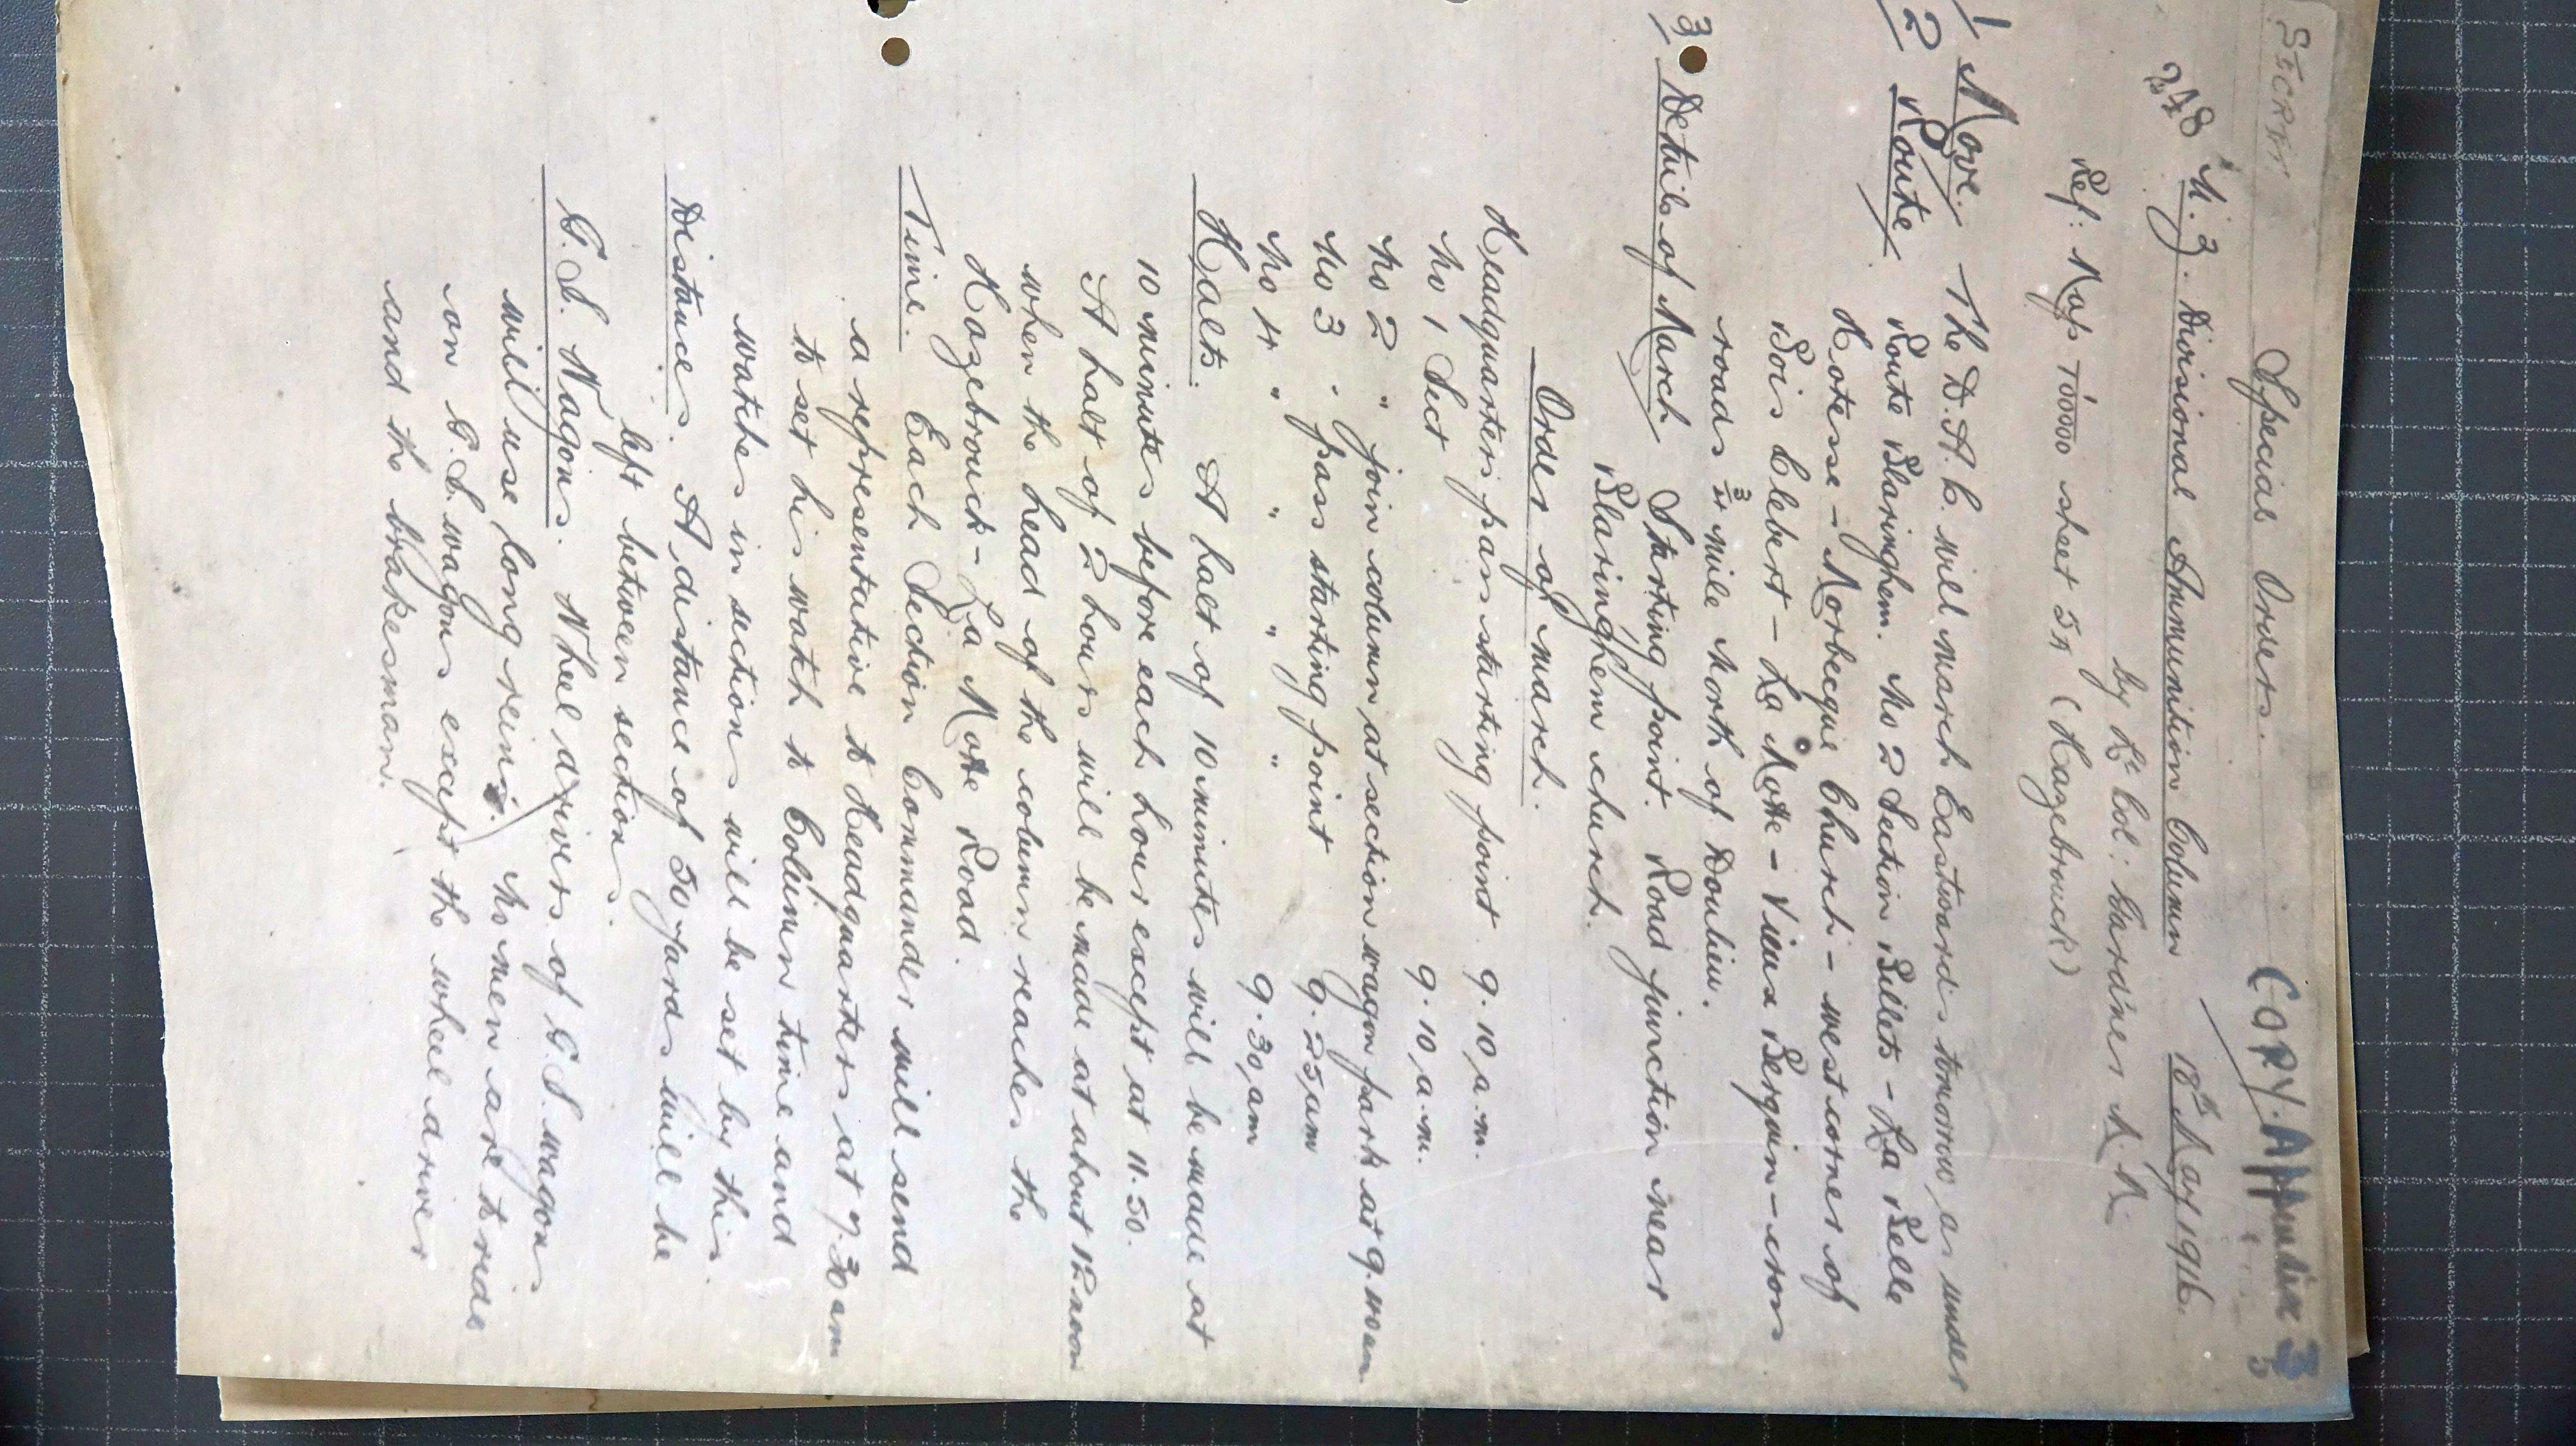 SECRET
Special Orders.
COPY. Appendix 3
5
N.Z. Divisional Ammunition Column 18th May 1916.
by Lt Col: Gardner N.Z.
Ref: Map 1/100000 sheet 5A (Hazebrouck)
1/ Move. The D.A.C. will march Eastwards tomorrow as under
2/ Route Route Blaringhem. No 2 Section Billets - La Belle
Hotesse - Morbecque Church - west corner of
Bois Clebert - La Motte - Vieux Berquin - cross
roads 3/4 mile North of Doulieu.
3/ Details of March Starting point. Road junction near
Blaringhem church.
Order of march.
Headquarters pass starting point 9.10 a.m.
No 1 Sect 9.10 a.m.
No 2 " join column at section wagon park at 9.
No 3 " pass starting point 9.25 am
No 4 " " " 9.30 am
Halts. A halt of 10 minutes will be made at
10 minutes before each hour except at 11.50.
A halt of 2 hours will be made at about 12 noon
when the head of the column reaches the
Hazebrouck - La Motte Road.
Time. Each Section Commander will send
a representative to Headquarters at 7.30 am
to set his watch to Column time and
watches in sections will be set by this.
Distances. A distance of 50 yards will be
left between sections.
G.S. Wagons. Wheel drivers of G.S. wagons
will use long reins. No men are to ride
on G.S. wagons except the wheel driver
and the brakesman.